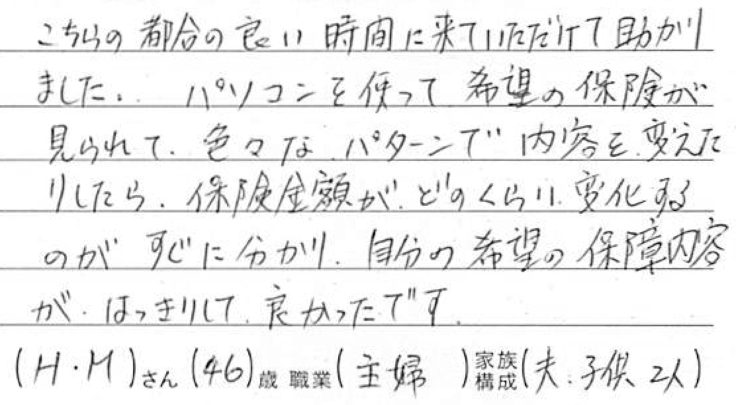 こちらの都合の良い時間に来ていただけて助かり
ました。パソコンを使って希望の保険が
見られて、色々なパターンで内容を変えた
りしたら、保険金額がどのくらい変化する
のがすぐに分かり、自分の希望の保障内容
が、はっきりして良かったです。
(H・M)さん(46)歳 職業(主婦)家族構成(夫、子供2人)